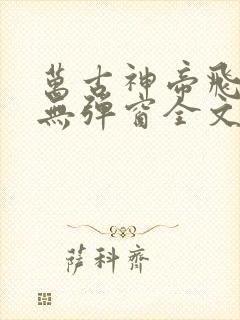 萬古神帝飛
無彈窗全文
薩科齊